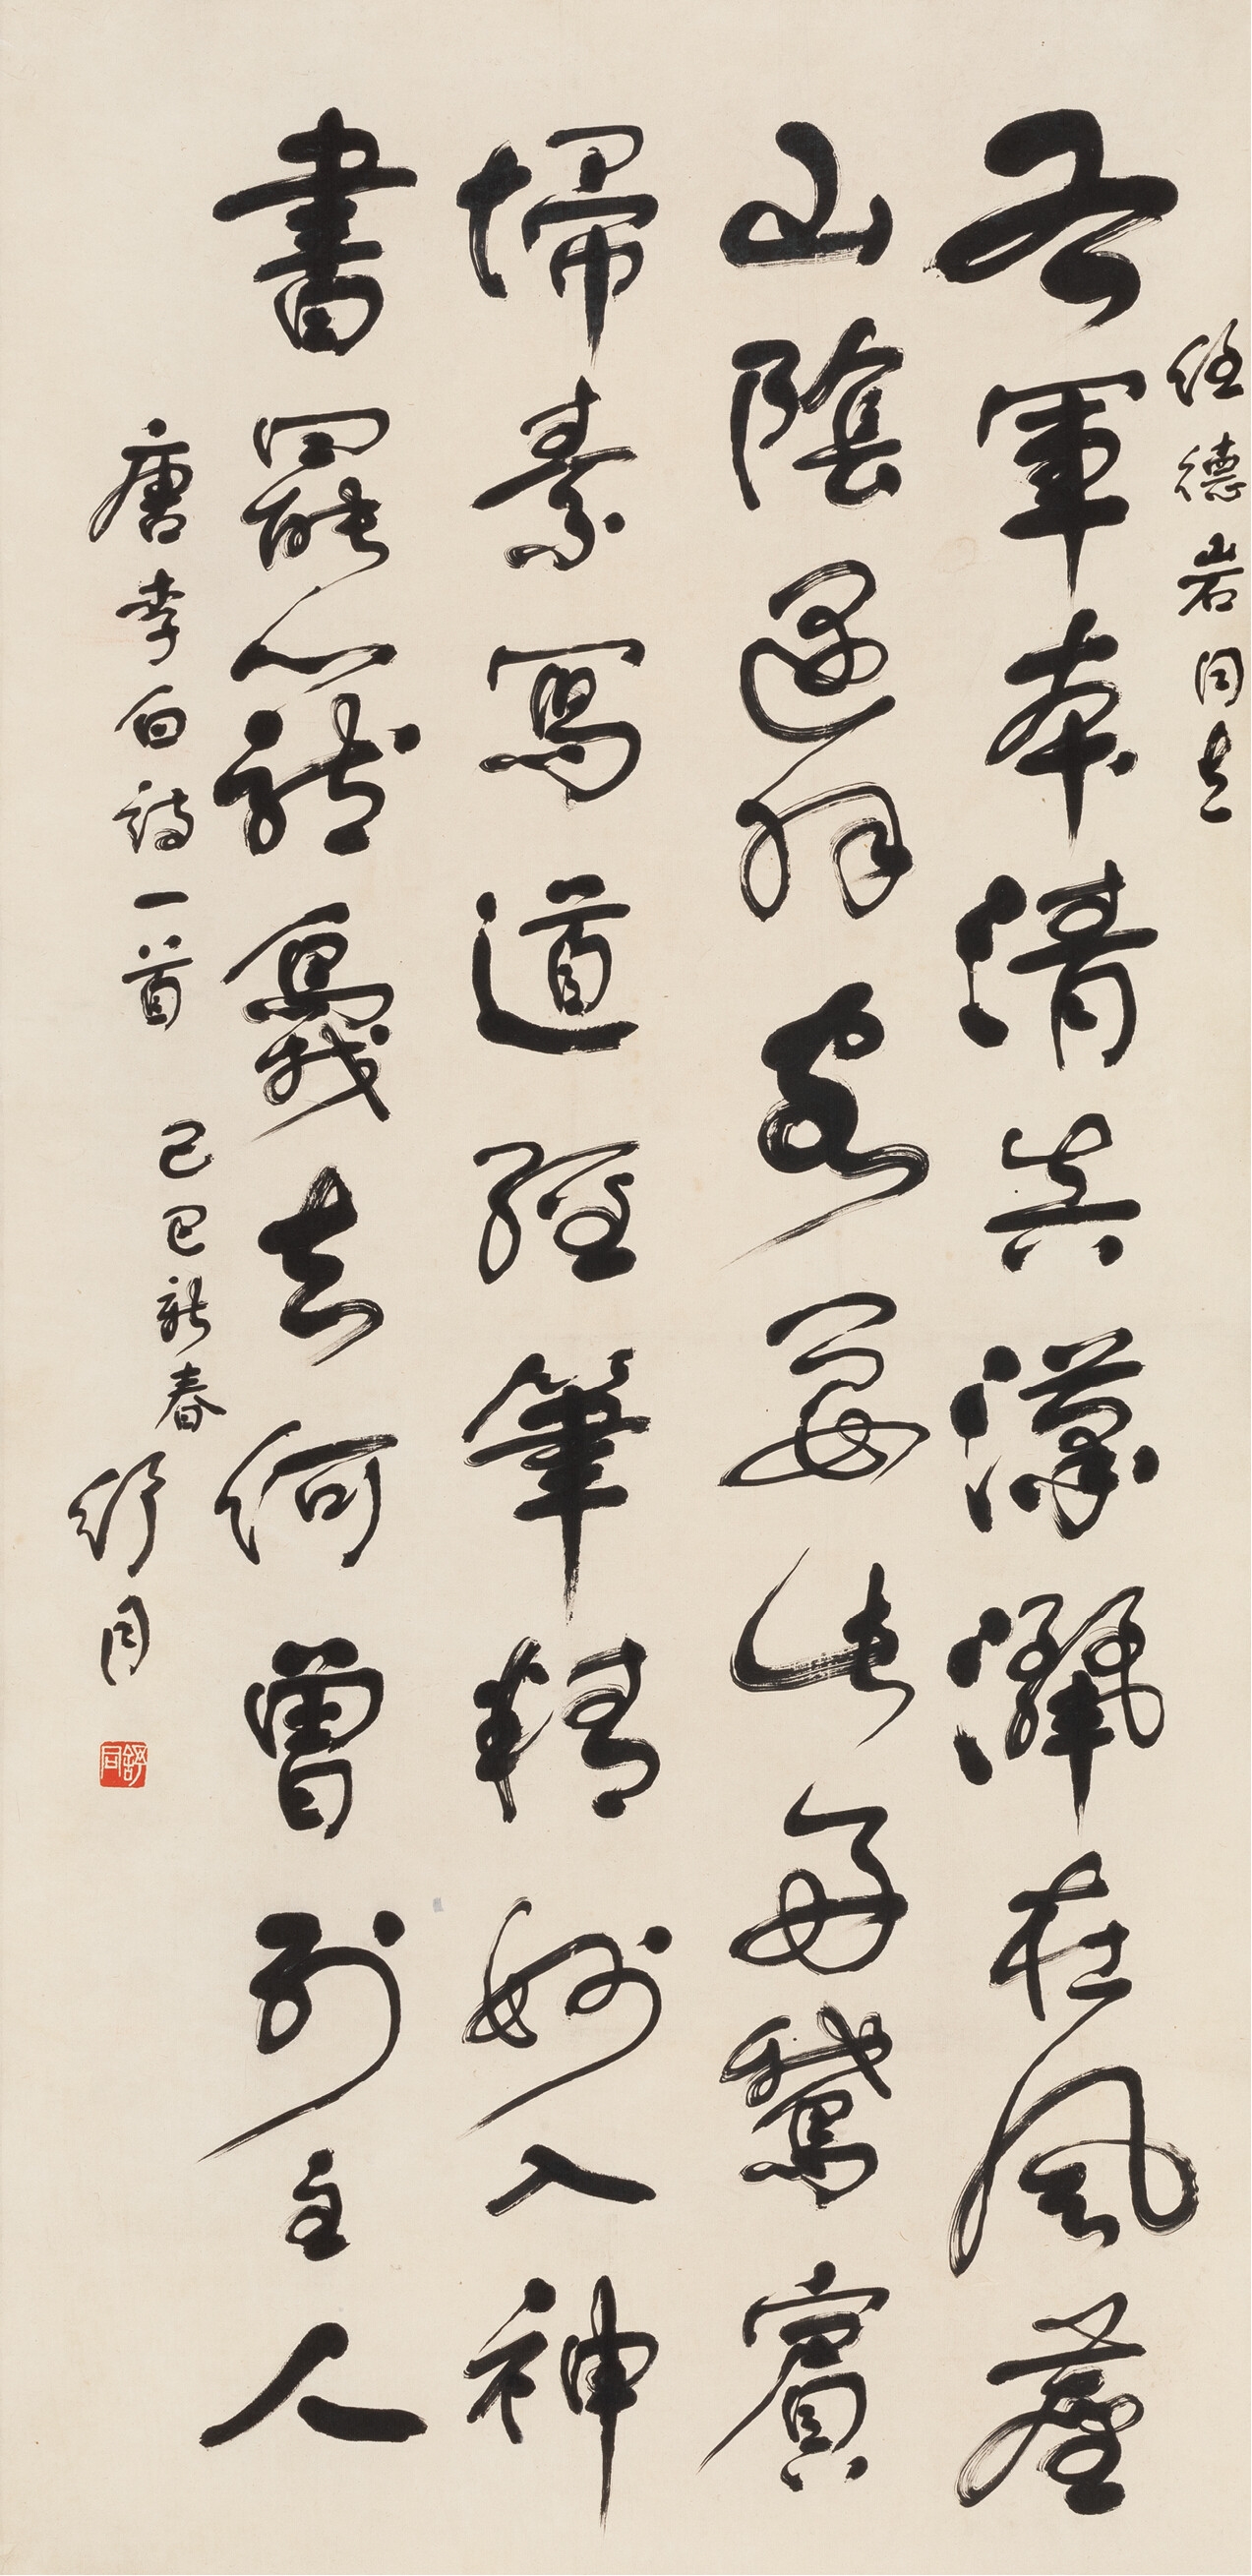 任德岩同志
右軍本清真瀟灑在風塵
山陰遇羽客要此好鵝賓
掃素寫道經筆精妙入神
書罷籠鵝去何曾別主人
唐李白詩一首
己巳新春
舒同
舒同